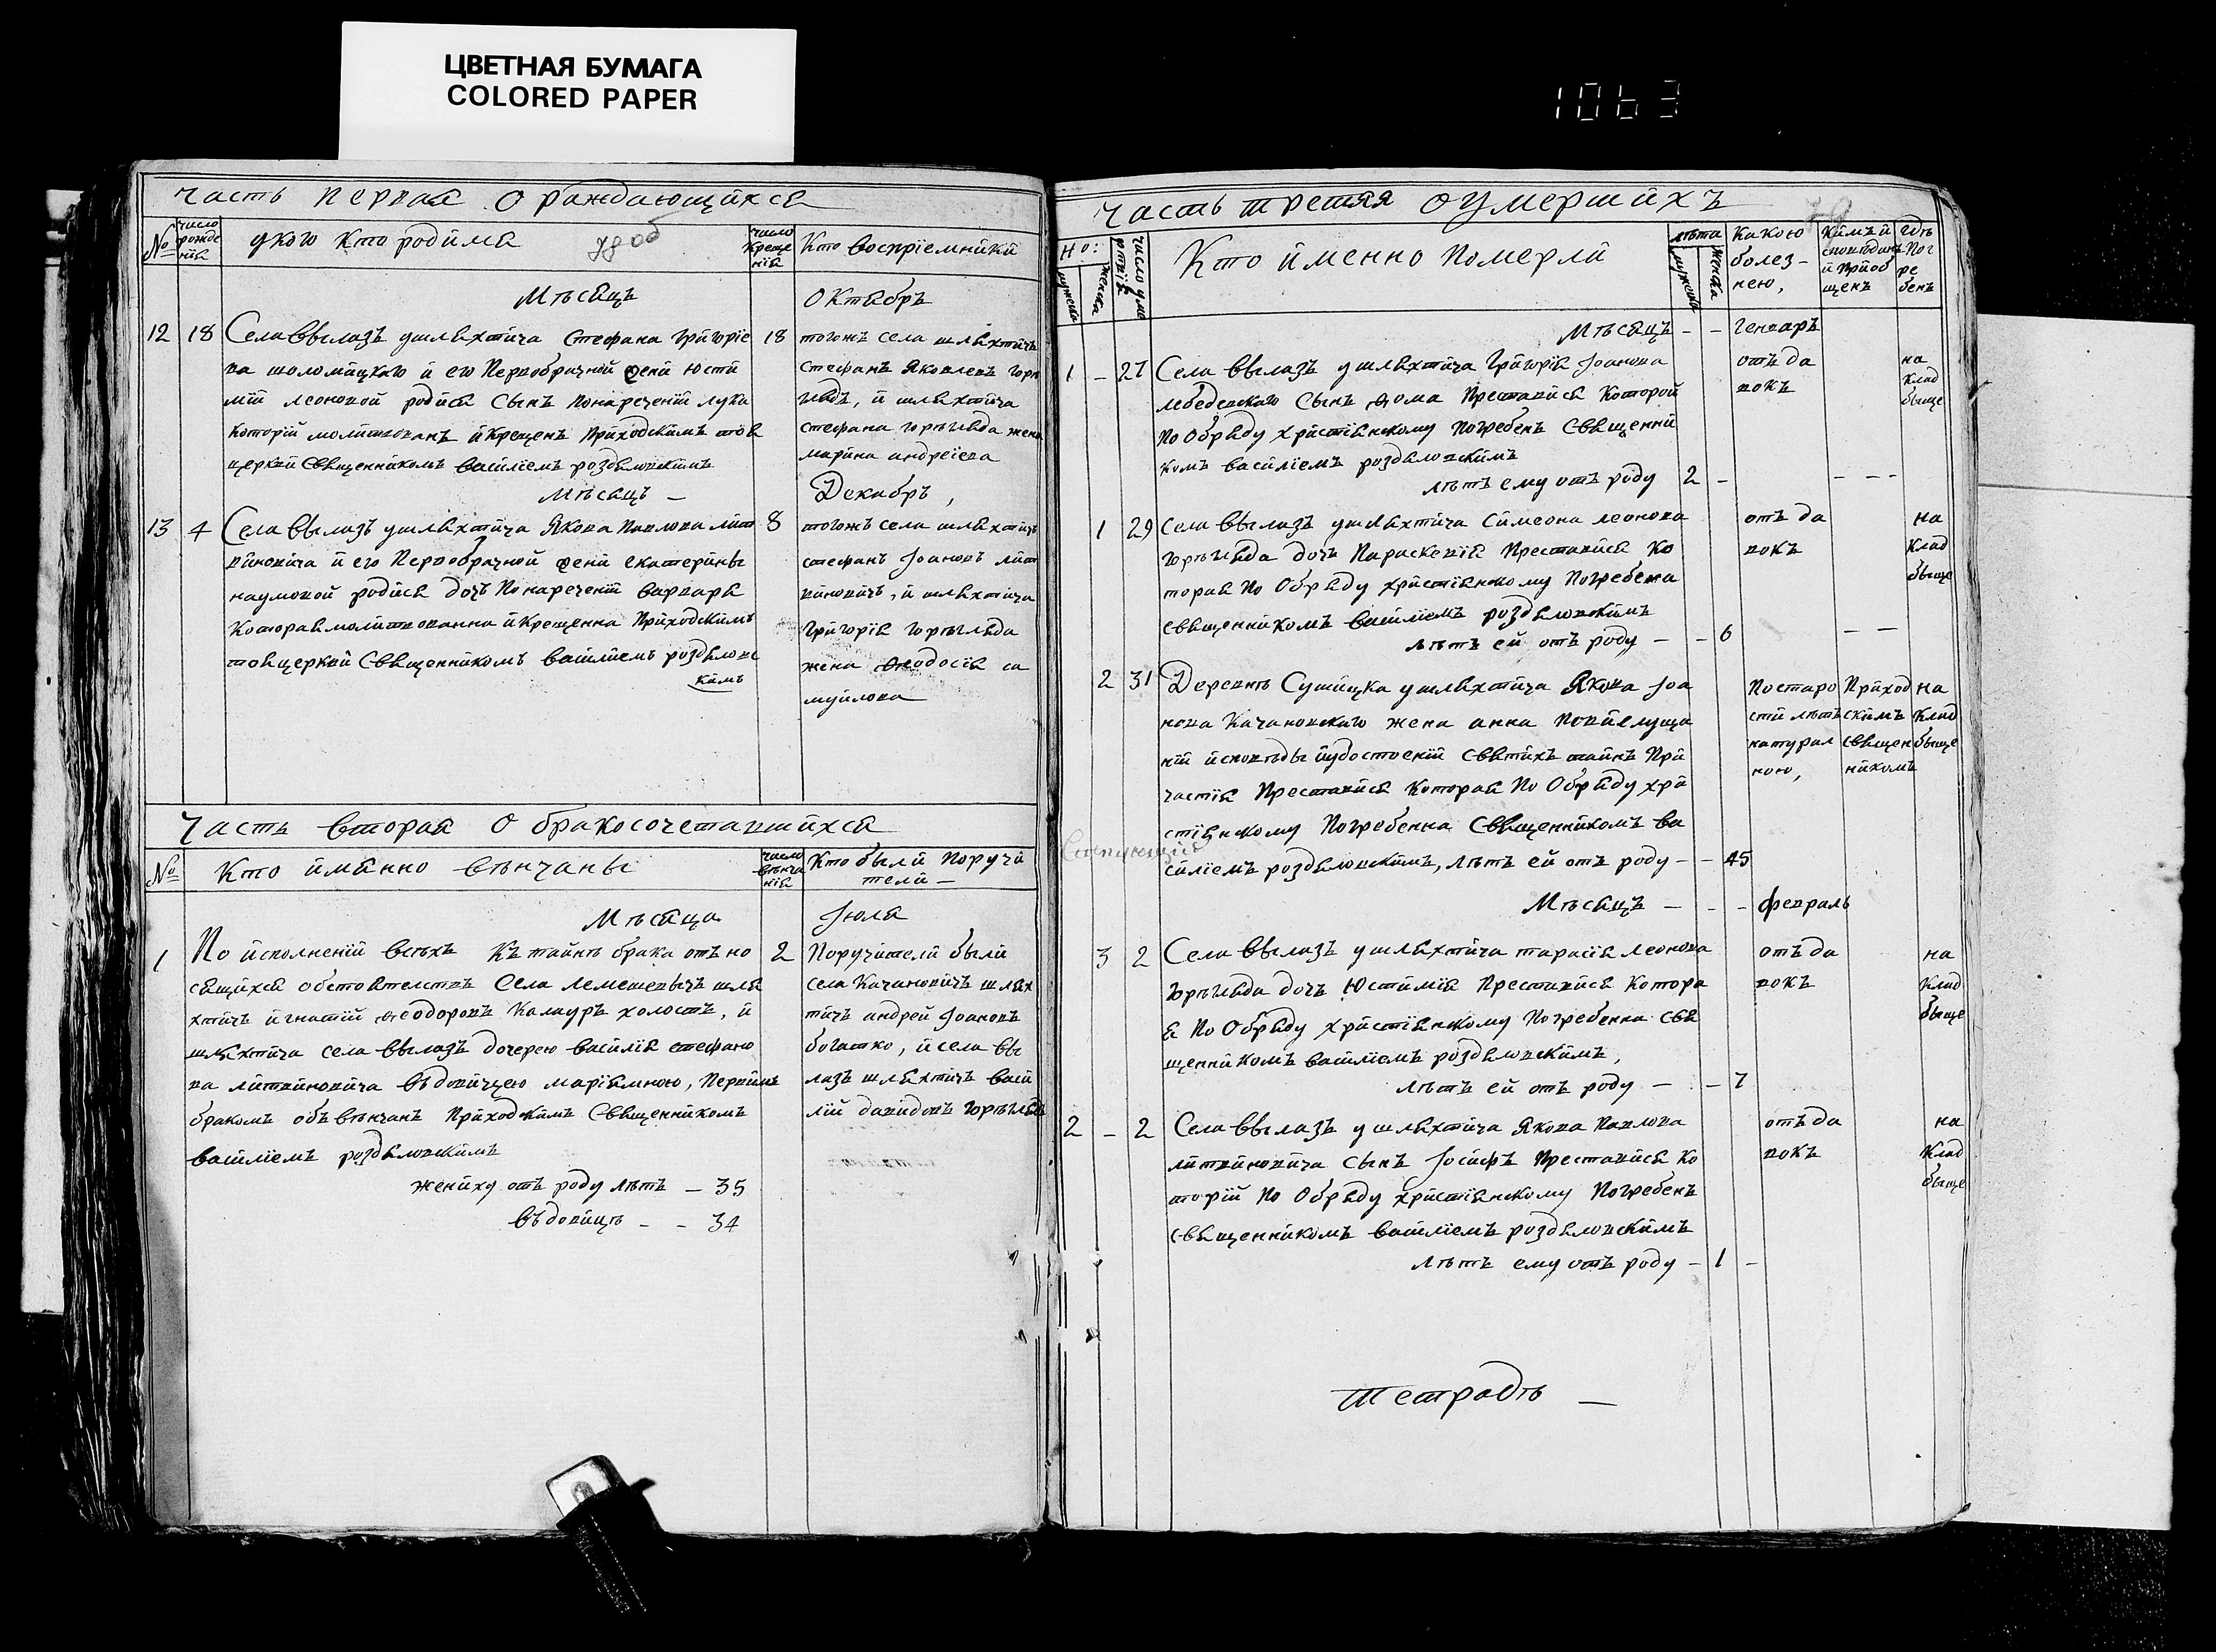 ЦВЕТНАЯ БУМАГА
COLORED PAPER
1063
часть первая о раждающихся
№
число рожде нія
у кого кто родился
78 об
число креще нія
Кто воспріемники
Мѣсяцъ
Октябръ
12 18 Села Ввылазъ ушляхтича Стефана Григоріе 18
ва шоломицкаго и его Первобрачной жени Юсти
міи леоновой родися Сынъ понареченіи лука
которій молитвованъ и Крещенъ Приходскимъ тоя
церкви Священникомъ василіемъ роздяловскимъ
тогожъ села шляхтичъ
Стефанъ Яковлевъ горя
глядъ, и шляхтича
Стефана горегляда жена
марина андреіева
Мѣсяцъ —
Декабръ,
13 4 Села вылазъ ушляхтича Якова Павлова лит 8
виновича и его Первобрачной жени екатерины
наумовой родися дочъ Понареченіи варвара
Котораямолитвованна и Крещенна Приходскимъ
тояцеркви Священникомъ василіемъ роздяловс
кимъ
тогожъ села шляхтичъ
стефанъ Іоановъ лит
виновичъ, и шляхтича
Григорія горегляда
жена феодосія са
муилова
Часть вторая о бракосочетавшихся
№
Кто имянно вѣнчаны
число вѣнча нія
Кто были поручи
тели —
Мѣсяца
Іюля
1 По исполненіи всѣхъ къ тайнѣ брака отъно 2
сящихся обстоятелствъ Села лемешевычъ шля
хтичъ игнатій феодоровъ Калауръ холостъ, и
шляхтича села ввылазъ дочерею василія стефано
ва литвиновича въдовицею маріямною, Первимъ
бракомъ объвѣнчанъ Приходскимъ Священникомъ
василіемъ роздяловскимъ
жениху отъ роду лѣтъ — 35
въдовицѣ — — 34
Поручители были
села Качановичъ шлях
тичъ андрей Іоановъ
богатко, и села вы
лазъ шляхтичъ васи
лій давидовъ горегляд
часть третяя оумершихъ
но:
мужеска
женска
число уме ртвія
Кто именно померли
лѣта
мужеска
женска
какою
болез-
нею,
Кимъ и
исповѣданъ
и приоб
щенъ
гдѣ
Пог
ре
бенъ
Мѣсяцъ — — генваръ
1 — 27 Села ввылазъ ушляхтича Григорія Іоанова
лебедевскаго Сынъ фома Преставися Которой
по Обряду христіянскому погребенъ Священни
комъ василіемъ роздяловскимъ
лѣтъ ему отъ роду 2 —
отъ да
вокъ
на
клад
быще
1 29 Села ввылазъ ушляхтича Симеона леонова
горегляда дочъ Параскевія Преставися Ко
торая по Обряду христіянскому Погребена
священникомъ василіемъ роздяловскимъ
лѣтъ ей отъ роду — — 6
отъ да
вокъ
на
клад
быще
2 31 Деревнѣ Сушицка ушляхтича Якова Іоа
нова Качановскаго жена анна
ніи исповѣды иудостоеніи святихъ тайнъ При
частія Преставися Которая по Обряду хри
стіянскому Погребенна Священникомъ ва
силіемъ роздяловскимъ, лѣтъ ей отъ роду — — 45
Постаро
сти лѣтъ
натурал
ною,
Приход
скимъ
священ
никомъ
на
клад
быще
Мѣсяцъ — — — февралъ
3 2 Села ввылазъ ушляхтича тарасія леонова
горегляда дочъ Юстимія Преставися Котора
я По Обряду христіянскому Погребенна Свя
щенникомъ василіемъ роздяловскимъ,
лѣтъ ей отъ роду — — 7
отъ да
вокъ
на
клад
быще
2 — 2 Села ввылазъ ушляхтича Якова Павлова
литвиновича Сынъ Іосифъ Преставися Ко
торій по Обряду христіянскому Погребенъ
священникомъ василіемъ роздяловскимъ
лѣтъ ему отъ роду — 1 —
отъ да
вокъ
на
клад
быще
Тетрадъ —